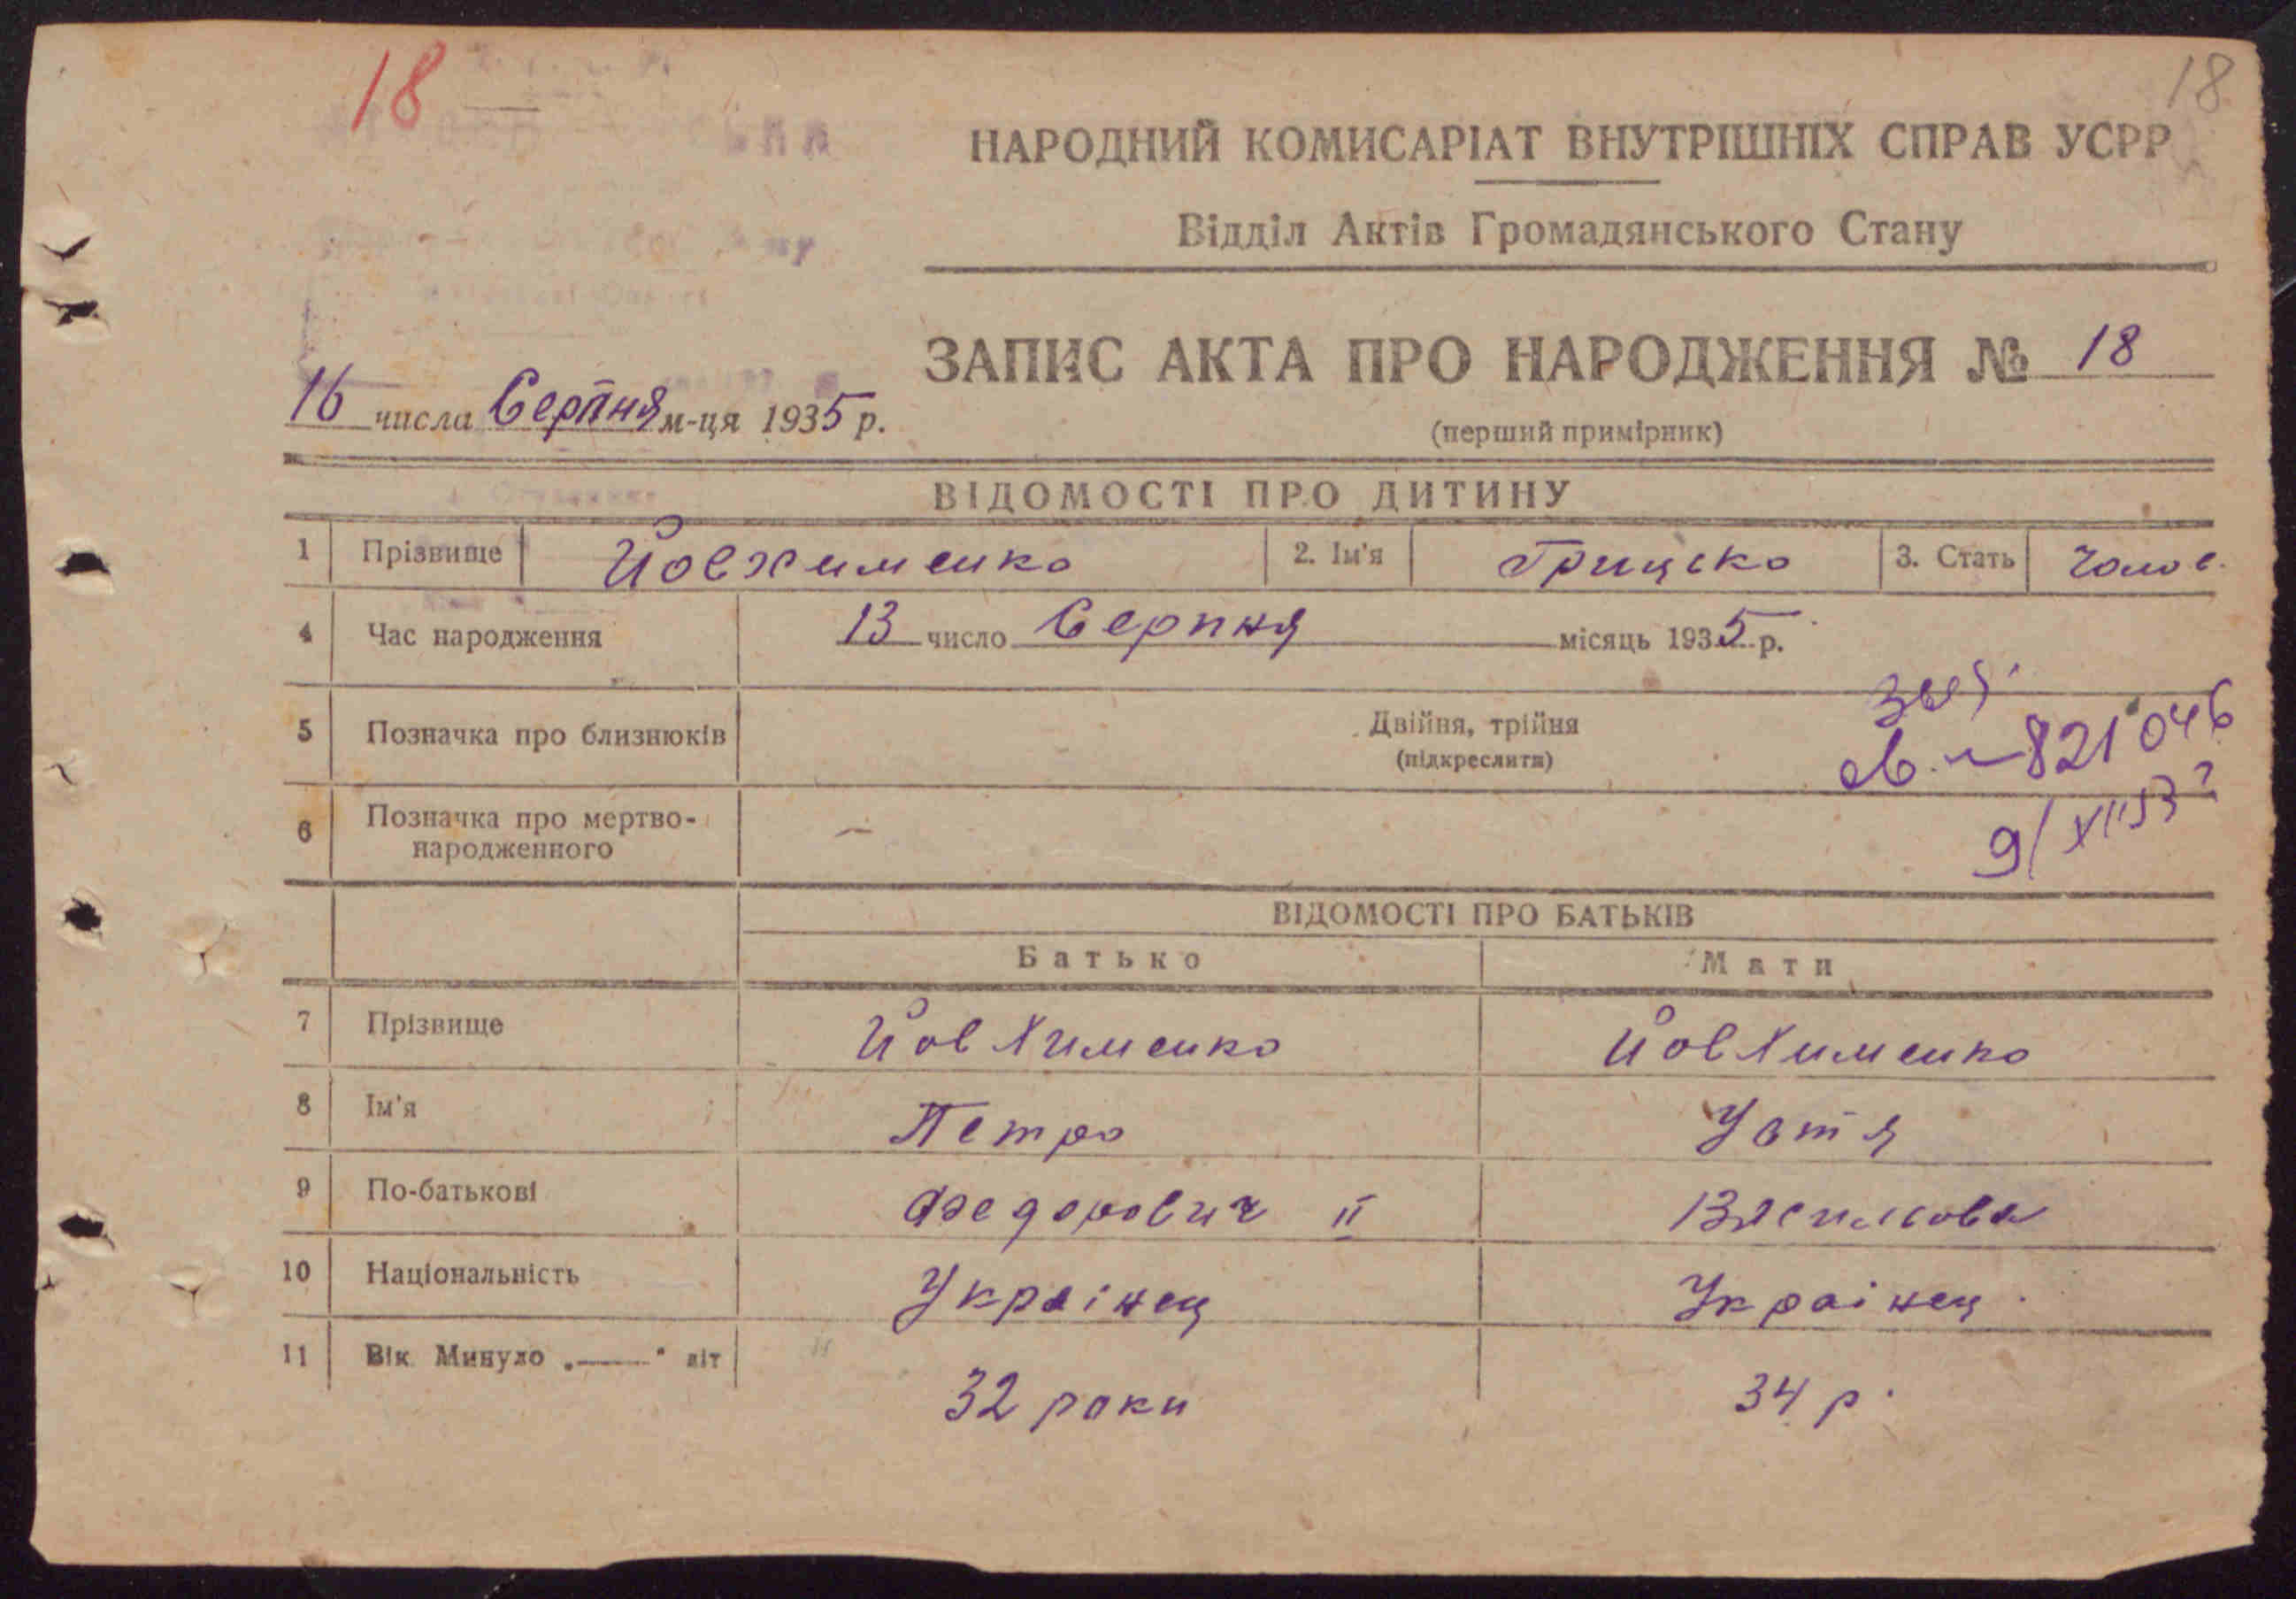 18
18
НАРОДНИЙ КОМИСАРІАТ ВНУТРІШНІХ СПРАВ УСРР
Відділ Актів Громадянського Стану
ЗАПИС АКТА ПРО НАРОДЖЕННЯ № 18
16 числа Серпня м-ця 1935 р.
(перший примірник)
ВІДОМОСТІ ПРО ДИТИНУ
1 Прізвище Йовхименко 2. Ім'я Грицько 3. Стать Чолов.
4 Час народження 13 число Серпня місяць 1935 р.
5 Позначка про близнюків Двійня, трійня
(підкреслити)
821046
6 Позначка про мертво-
народженного -
9/XII 53
ВІДОМОСТІ ПРО БАТЬКІВ
Батько Мати
7 Прізвище Йовхименко Йовхименко
8 Ім'я Петро Устя
9 По-батькові Федорович II Василиова
10 Національність Украінец Украінец.
11 Вік Минуло „——" літ 32 роки 34 р.